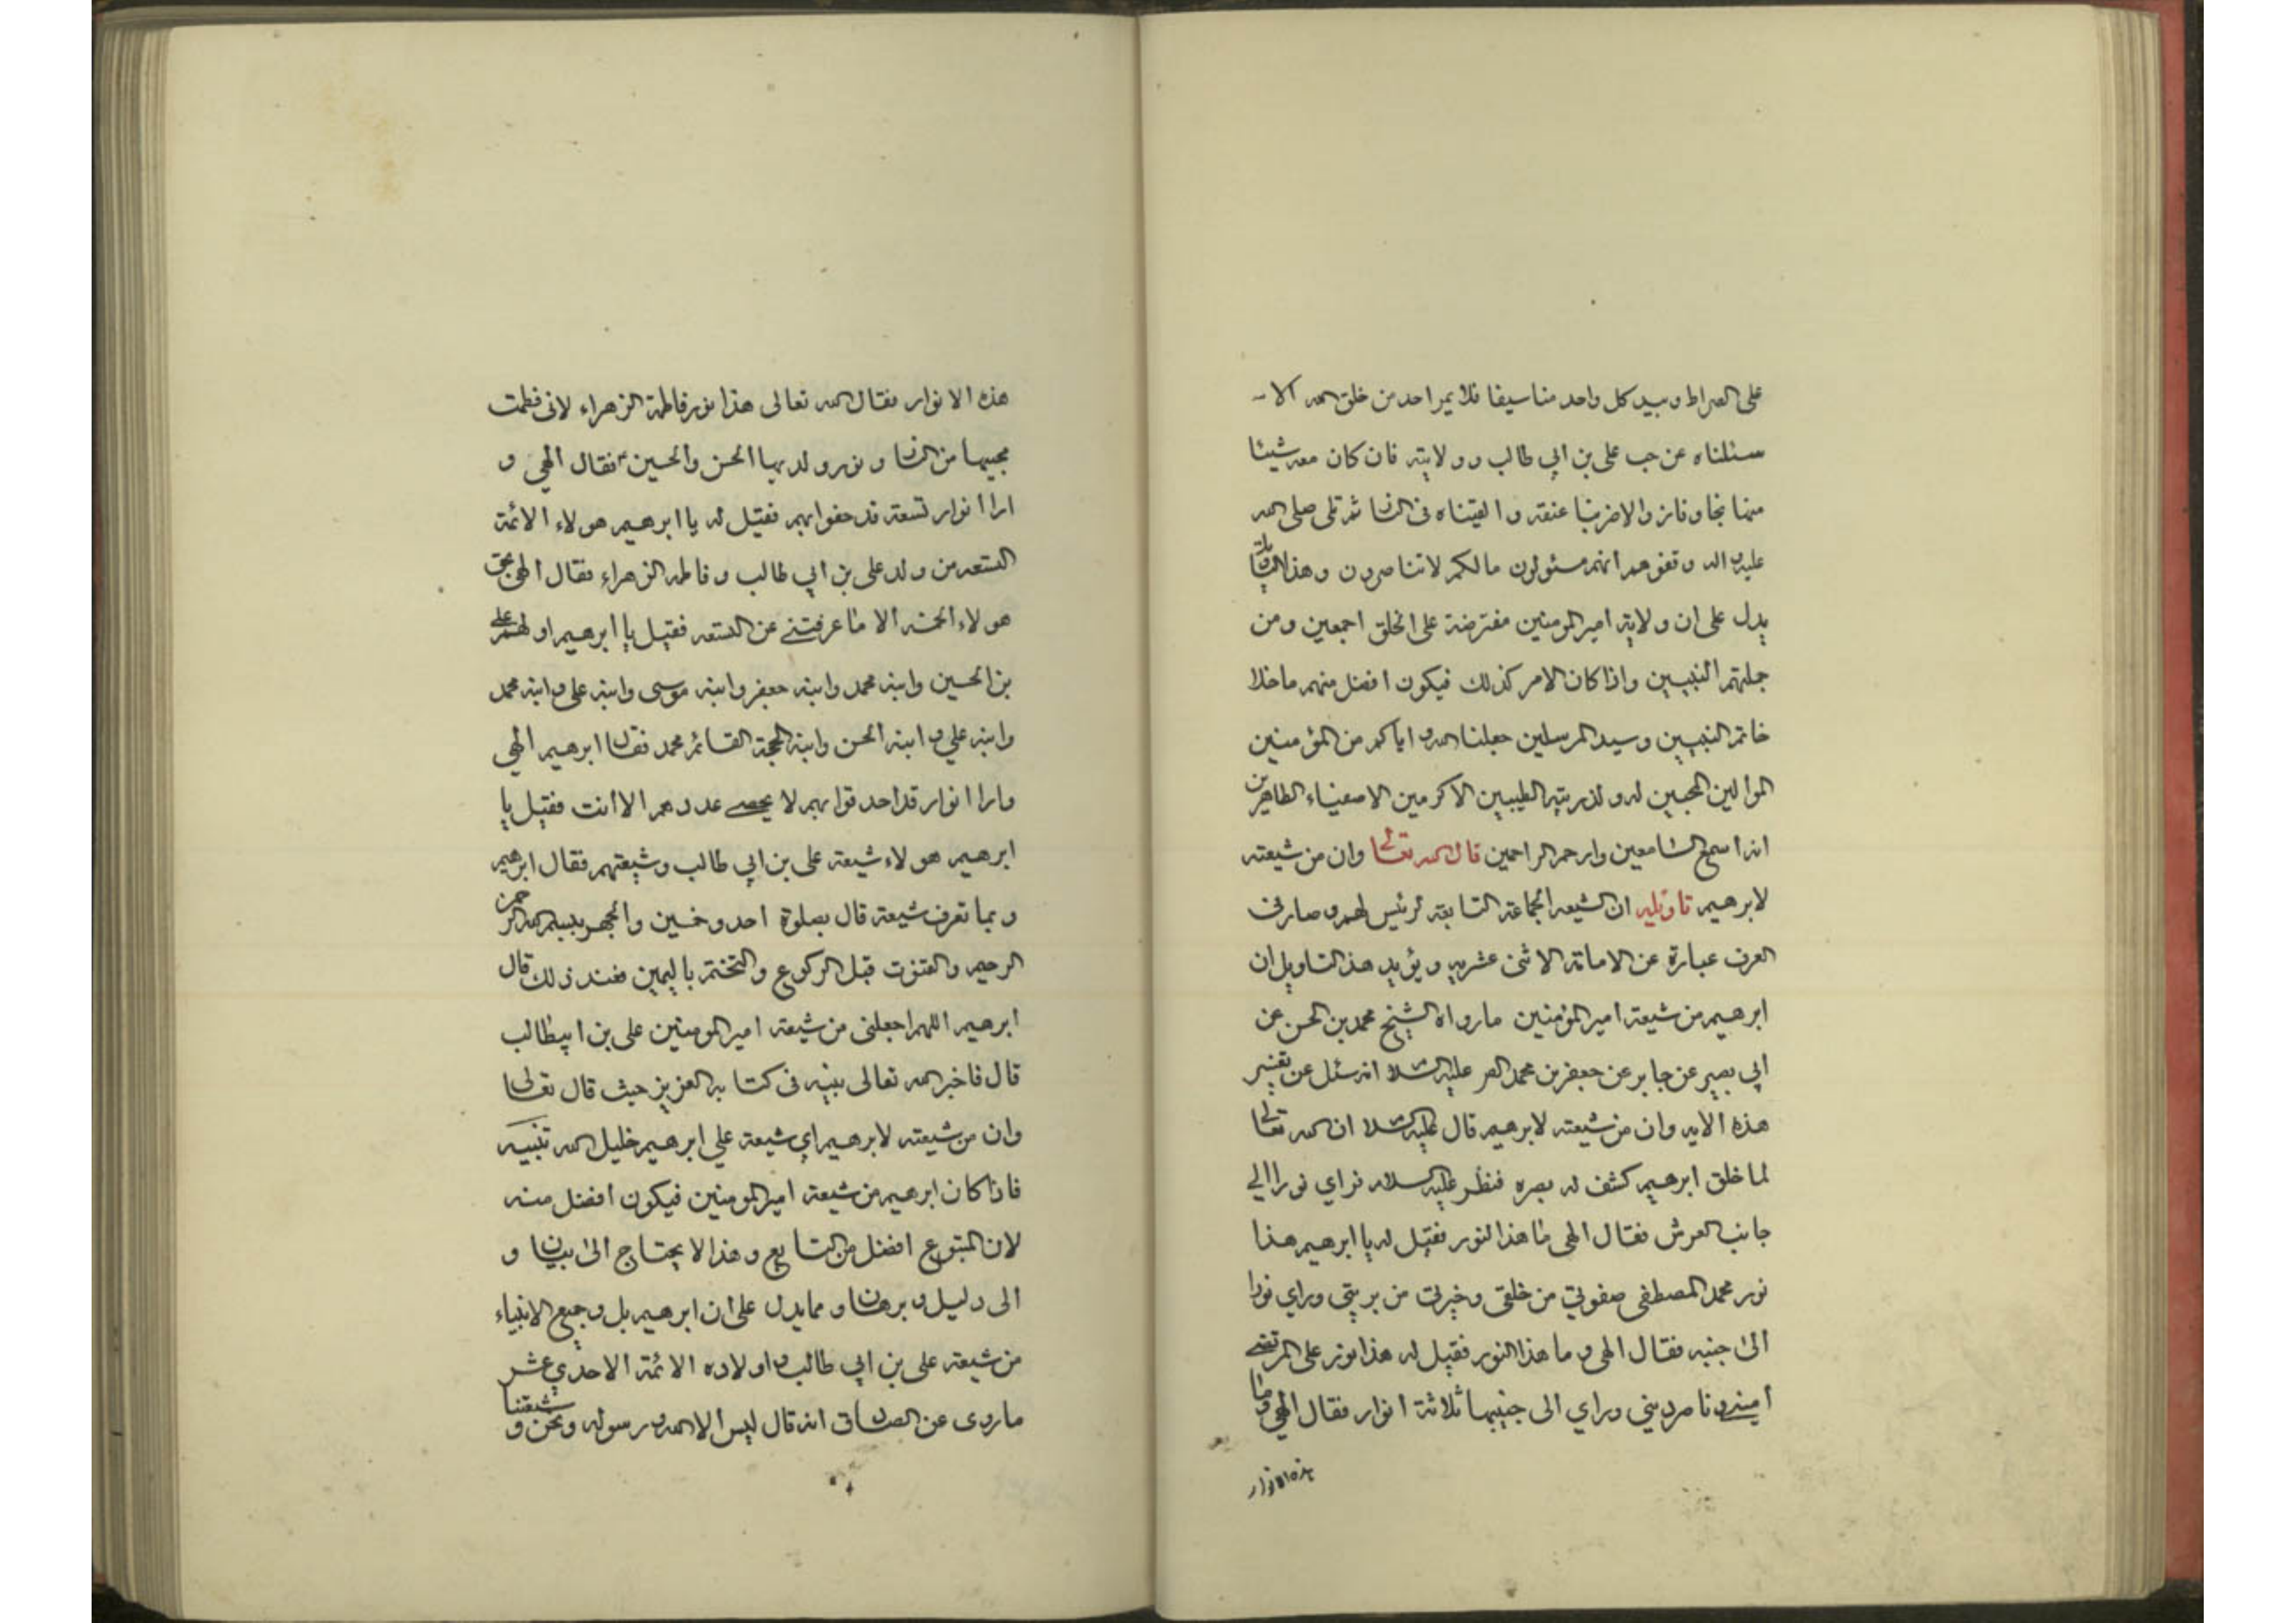 على الصراط وبيد كل واحد منا سيفا فلا يمر احد من خلق الله الا
سئلناه عن حب على بن ابي طالب وولايته فان كان معه شيئا
منها نجا وفاز والا ضربنا عنقه والقيناه فى النار ثم تلى صلى الله
عليه واله وقفوهم انهم مسئولون مالكم لا تناصرون وهذا
يدل على ان ولاية امير المومنين مفترضة على الخلق اجمعين ومن
جملتهم النبيين واذا كان الامر كذلك فيكون افضل منهم ما خلا
خاتم النبيين وسيد المرسلين جعلنا الله واياكم من المؤمنين
الموالين المحبين له ولذريته الطيبين الاكرمين الاصفياء الطاهرين
انه اسمع السامعين وارحم الراحمين قال الله تعالى وان من شيعته
لابرهيم تاويله ان الشيعه الجماعة التابعة لرئيس لهم وصار فى
العرف عبارة عن الامامة الاثنى عشريه ويؤيد هذا التاويل ان
ابرهيم من شيعته امير المؤمنين ما رواه الشيخ محمد بن الحسن عن
ابي بصير عن جابر عن جعفر بن محمد الصر عليه السلام انه سئل عن تفسير
هذه الايه وان من شيعته لابرهيم قال عليه السلام ان الله تعالى
لما خلق ابرهيم كشف له بصره فنظر عليه السلام فراي نورا الي
جانب العرش فقال الهى ما هذا النور فقيل له يا ابرهيم هذا
نور محمد المصطفى صفوتي من خلقى وخيرتي من بريتي وراي نورا
الى جنبه فقال الهى وما هذا النور فقيل له هذا نور على المرتضى
ناصر ديني وراي الى جنبهما ثلاثة انوار فقال الهي وما
هذه الانوار
هذه الانوار فقال الله تعالى هذا نور فاطمة الزهراء لانى فطمت
محبيها من النار ونور ولديها الحسن والحسين فقال الهي و
ارا انوار تسعة قد حفوا بهم فقيل له يا ابرهيم هولاء الائمة
التسعه من ولد على بن ابي طالب وفاطمه الزهراء فقال الهى بحق
هولاء الخمسه الا ما عرفتنى عن التسعه فقيل يا ابرهيم اولهم على
بن الحسين وابنه محمد وابنه جعفر وابنه موسى وابنه على وابنه محمد
وابنه علي وابنه الحسن وابنه الحجة القائم محمد فقال ابرهيم الهي
وارا انوار قد احدقوا بهم لا يحصى عددهم الا انت فقيل يا
ابرهيم هولاء شيعة على بن ابي طالب وشيعتهم فقال ابرهيم
وبما تعرف شيعته قال بصلوة احد وخمسين والجهر ببسم الله الرحمن
الرحيم والقنوت قبل الركوع والتختم باليمين فعند ذلك قال
ابرهيم اللهم اجعلنى من شيعة امير المومنين على بن ابيطالب
قال فاخبر الله تعالى نبيه فى كتابه العزيز حيث قال تعالى
وان من شيعته لابرهيم اي شيعة علي ابرهيم خليل الله تنبيه
فاذا كان ابرهيم من شيعة امير المومنين فيكون افضل منه
لان المتبوع افضل من التابع وهذا لا يحتاج الى بيان و
الى دليل وبرهان ومما يدل على ان ابرهيم بل وجميع الانبياء
من شيعة على بن ابي طالب واولاده الائمة الاحدي عشر
ما روى عن الصادق انه قال ليس الا الله ورسوله ونحن و شيعتنا